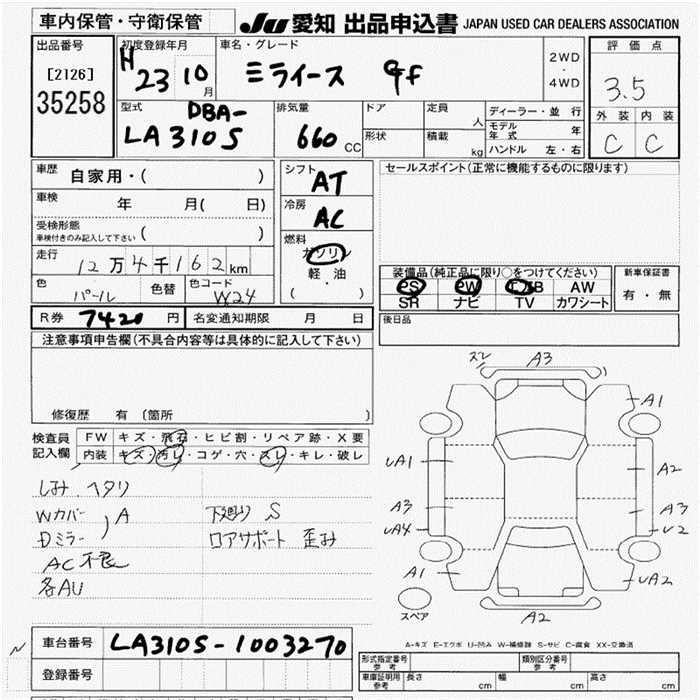 車内保管・守衛保管
JU 愛知 出品申込書 JAPAN USED CAR DEALERS ASSOCIATION
出品番号
[2126]
35258
初度登録年月
H 23 10 月
車名・グレード
ミライース Gf
2WD
・
4WD
評価点
3.5
外装 内装
C C
型式
DBA-
LA310S
排気量
660 CC
ドア
定員
人
形状
積載
kg
ディーラー・並行
モデル年式 年
ハンドル 左・右
車歴
自家用・( )
車検
年 月( 日)
受検形態
車検付きのみ記入して下さい ( )
走行
12万4千162km
色
パール
色替
色コード
W24
シフト
AT
冷房
AC
燃料
ガソリン
軽・油
( )
セールスポイント(正常に機能するものに限ります)
装備品(純正品に限り○をつけてください)
PS PW エアB AW
SR ナビ TV カワシート
新車保証書
有・無
R券 7420 円
名変通知期限 月 日
後日品
注意事項申告欄(不具合内容等は具体的に記入して下さい)
修復歴 有 〔箇所 〕
検査員
記入欄
FW キズ・飛石・ヒビ割・リペア跡・X要
内装 キズ・汚レ・コゲ・穴・スレ・キレ・破レ
しみ ヘタリ
Wカバー
Dミラー
) A
AC不良
各AU
下廻り S
ロアサポート 歪み
スレ A3
A1
UA1
A2
A3
A3
UA4
U2
A1
UA2
A2
スペア
A-キズ E-エクボ U-凹み W-補修跡 S-サビ C-腐食 XX-交換済
N
車台番号 LA310S-1003270
登録番号
形式指定番号
参考
類別区分番号
参考
車庫証明用
参考
長さ cm
幅 cm
高さ cm